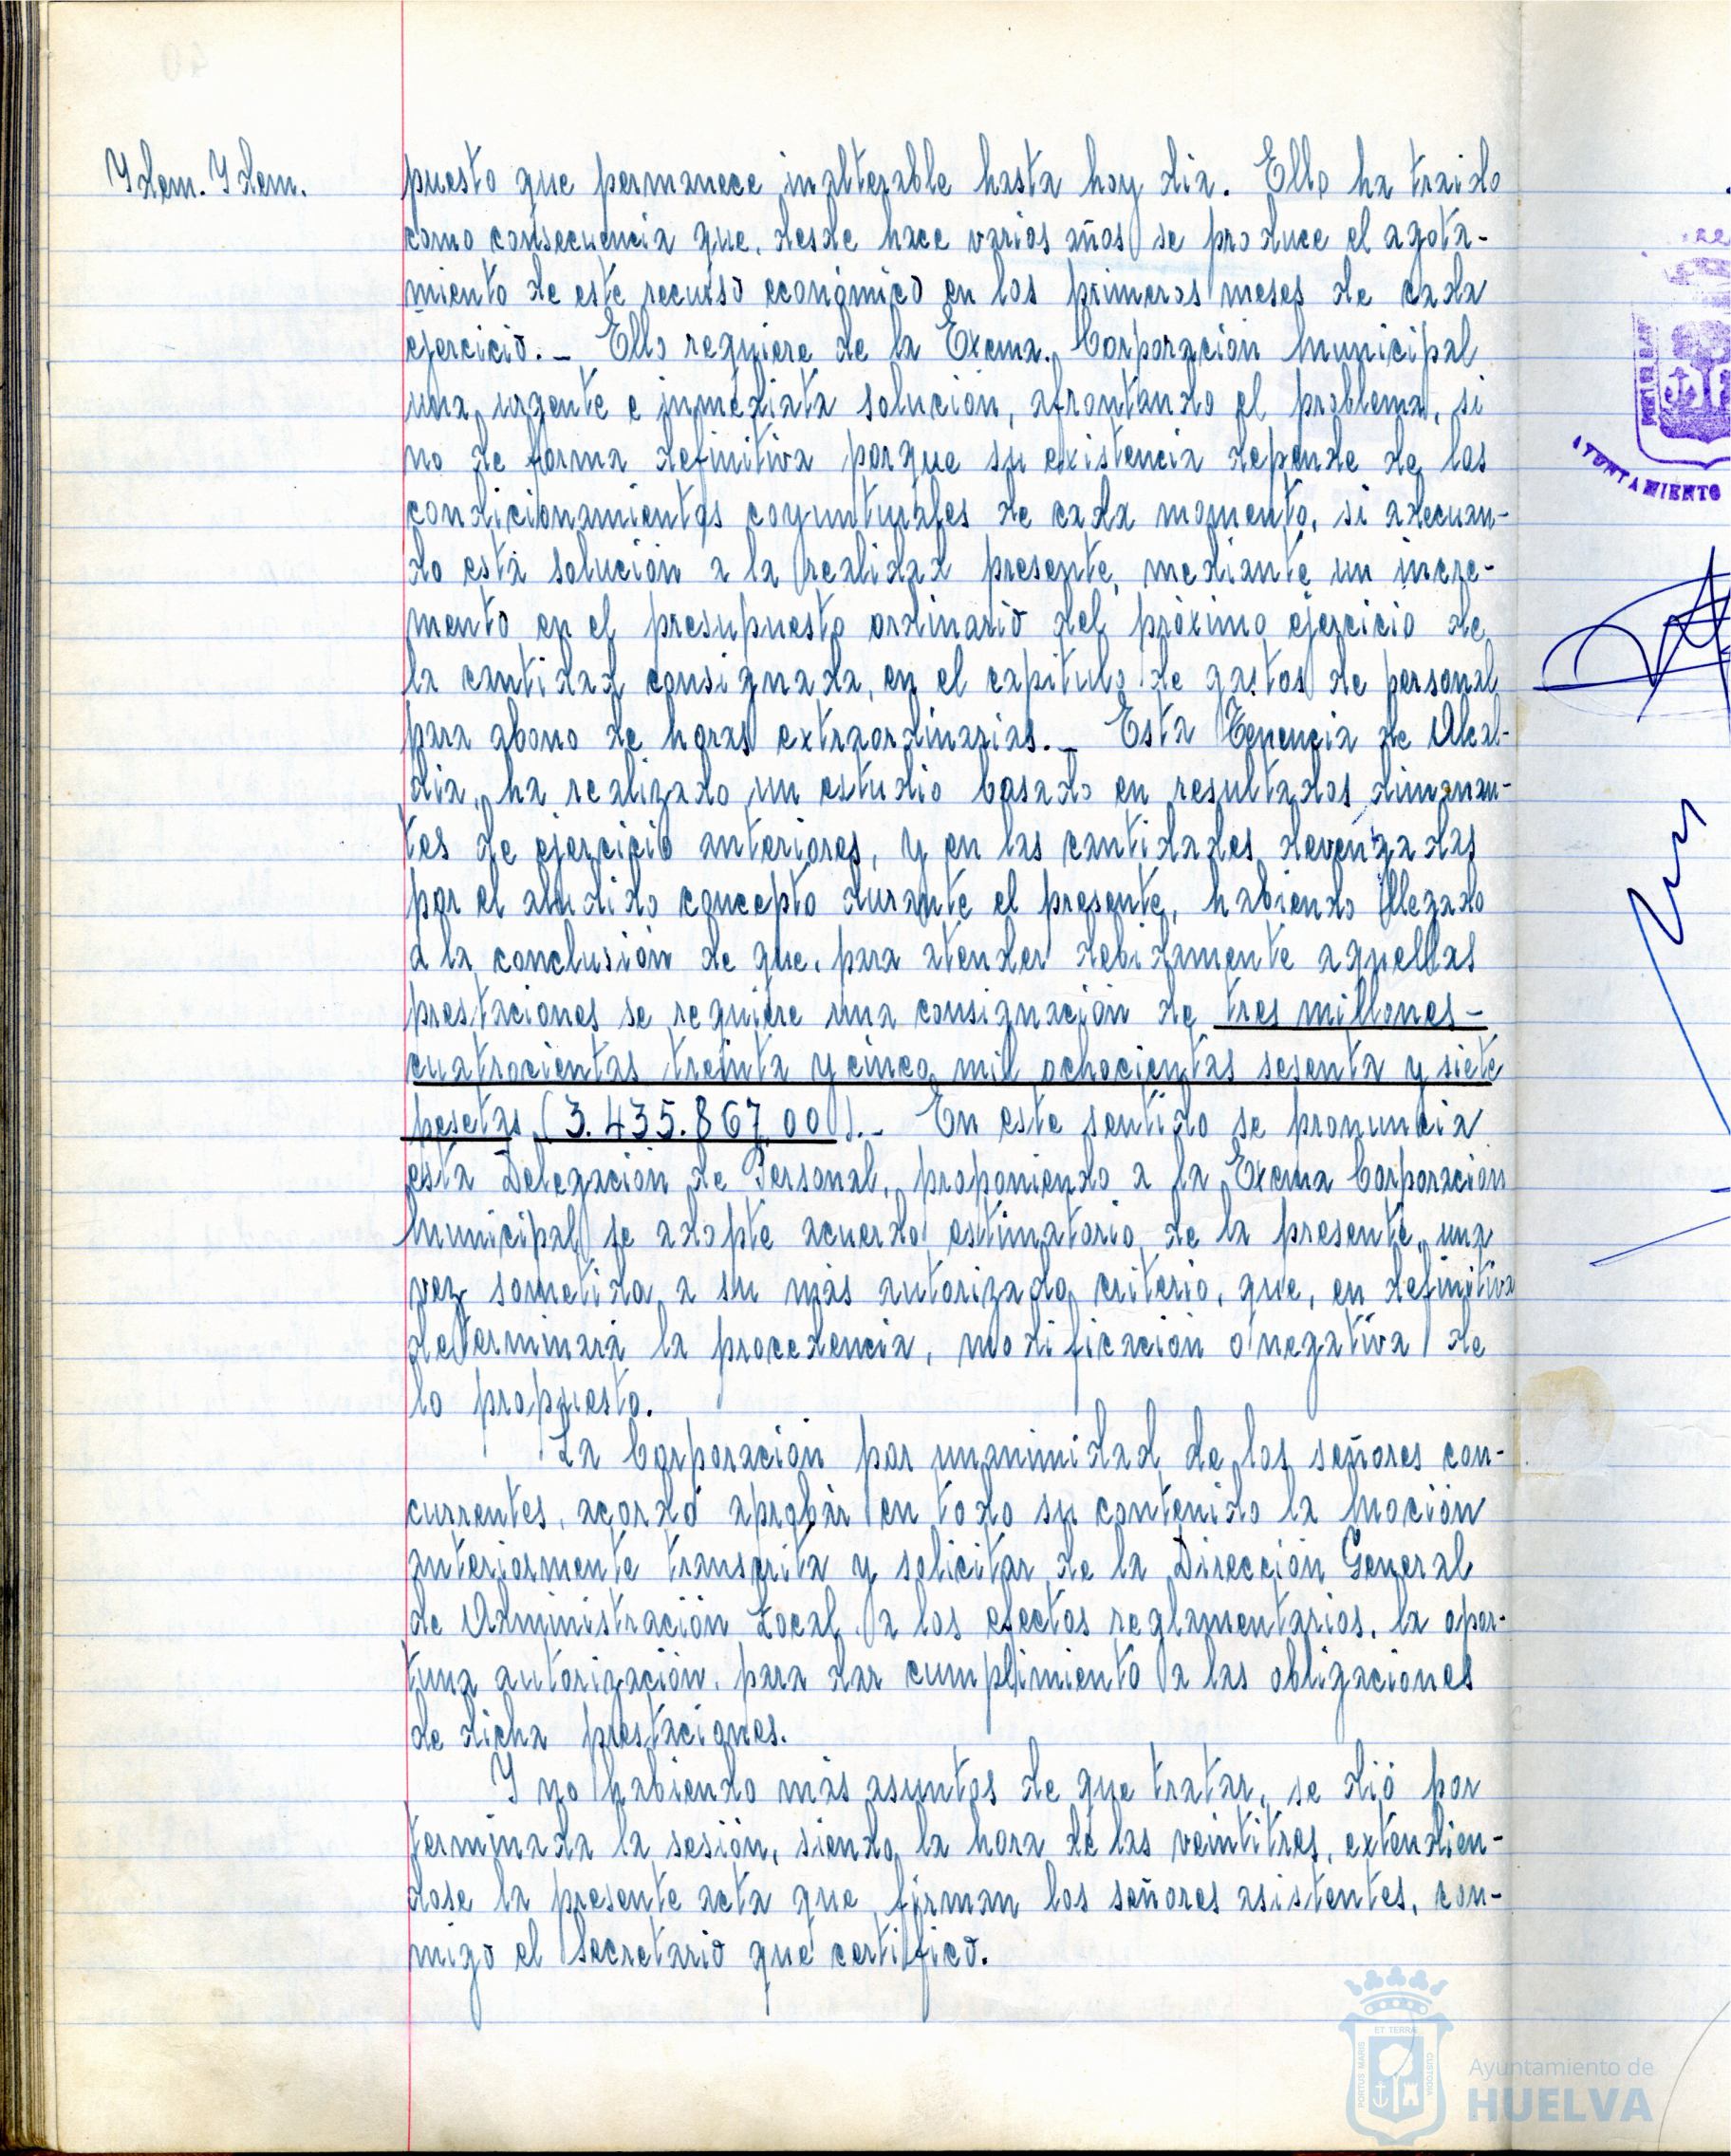 Idem. Idem.
puesto que permanece inalterable hasta hoy dia. Ello ha traido
como consecuencia que, desde hace varios años se produce el agota-
miento de este recurso económico en los primeros meses de cada
ejercicio.- Ello requiere de la Excma. Corporación Municipal
una urgente e inmediata solución, afrontando el problema, si
no de forma definitiva porque su existencia depende de los
condicionamientos coyunturales de cada momento, si adecuan-
do esta solución a la realidad presente, mediante un incre-
mento en el presupuesto ordinario del próximo ejercicio de
la cantidad consignada, en el capitulo de gastos de personal
para abono de horas extraordinarias.- Esta Tenencia de Alcal-
dia, ha realizado un estudio basado en resultados dimanan-
tes de ejercicio anteriores, y en las cantidades devengadas
por el aludido concepto durante el presente, habiendo llegado
a la conclusión de que, para atender debidamente aquellas
prestaciones se requiere una consignación de tres millones-
cuatrocientas treinta y cinco mil ochocientas sesenta y siete
pesetas (3.435.867,00).- En este sentido se pronuncia
esta Delegación de Personal, proponiendo a la Excma Corporación
Municipal se adopte acuerdo estimatorio de la presente, una
vez sometida a su más autorizado criterio, que, en definitiva
determinará la procedencia, modificación o negativa de
lo propuesto.
La Corporación por unanimidad de los señores con-
currentes, acordó aprobar en todo su contenido la Moción
anteriormente transcrita y solicitar de la Dirección General
de Administración Local, a los efectos reglamentarios, la opor-
tuna autorización, para dar cumplimiento a las obligaciones
de dicha prestaciones.
Y no habiendo más asuntos de que tratar, se dió por
terminada la sesión, siendo la hora de las veintitres, extendien-
dose la presente acta que firman los señores asistentes, con-
migo el Secretario que certifico.
AYUNTAMIENTO
PORTUS MARIS
ET TERRÆ
CUSTODIA
Ayuntamiento de
HUELVA